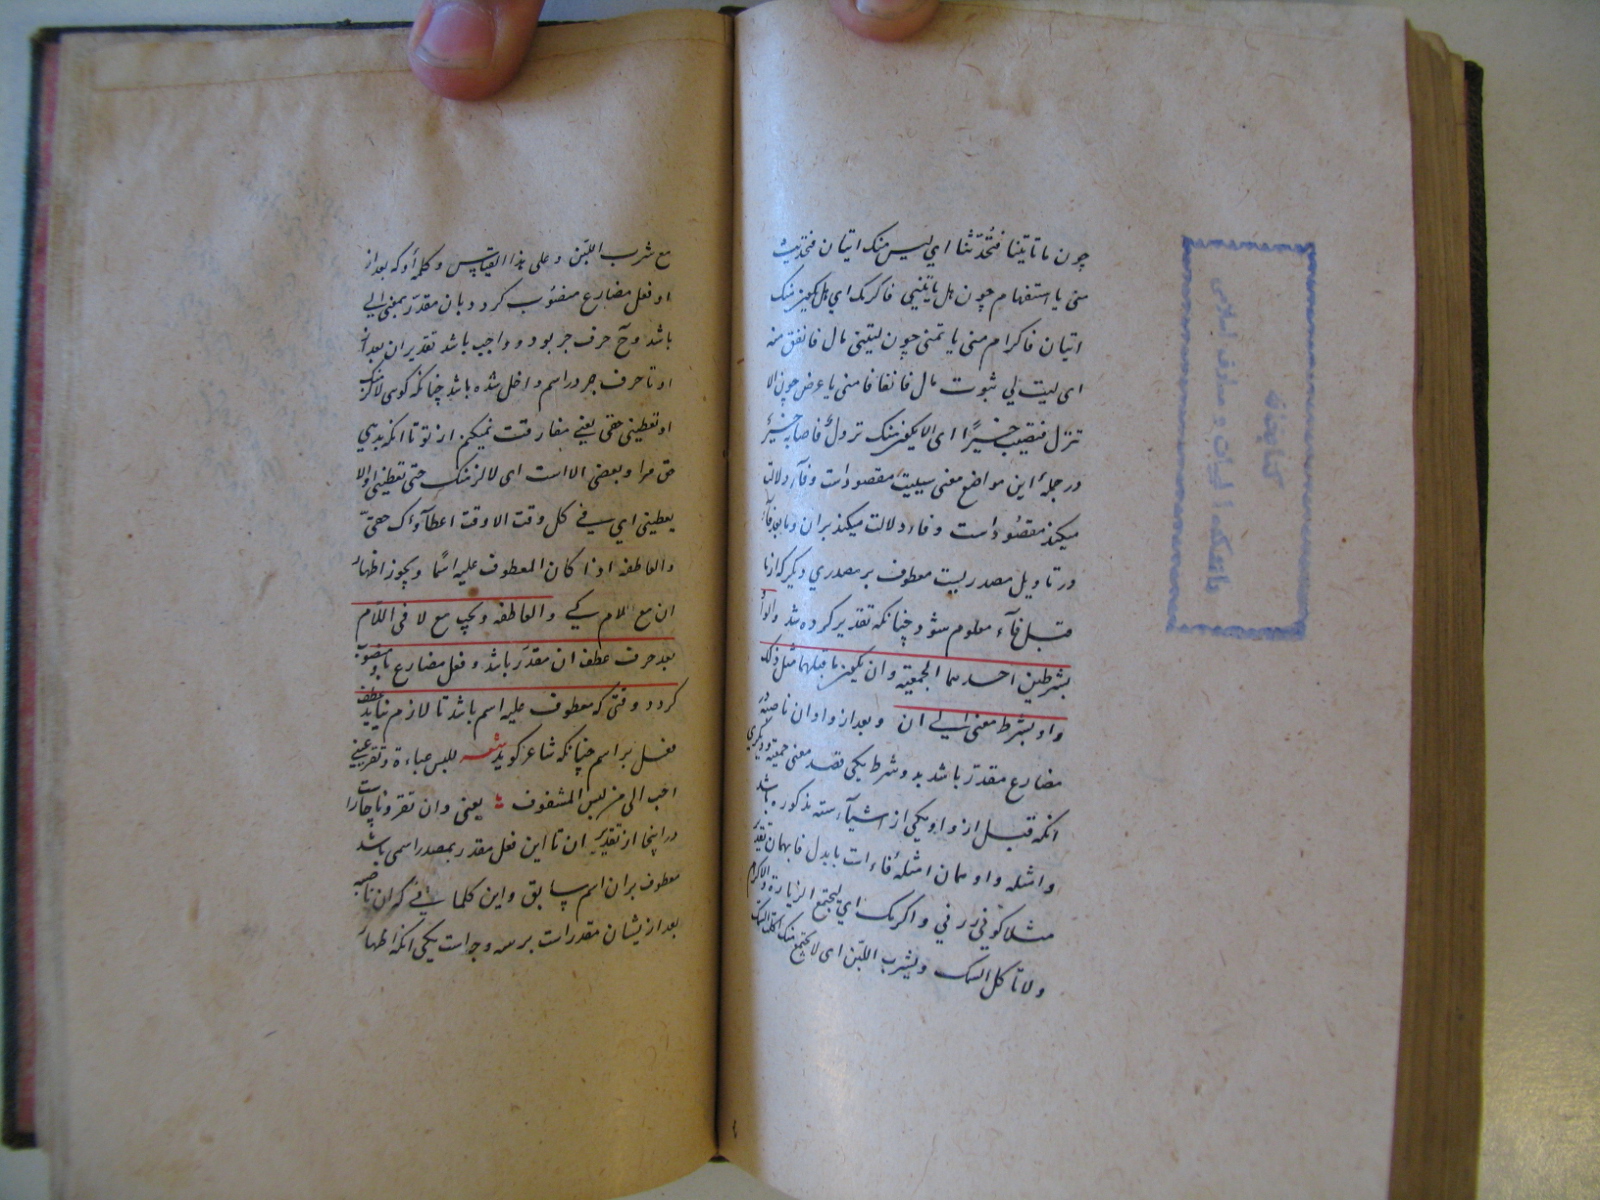 چون ما تأتینا فتُحدّثنا ای لیس منک اتیان فتحدیث
منی یا استفهام چون هل یأتینی فاکرمک ای هل یکون منک
اتیان فاکرام منی یا تمنی چون لیتنی مال فانفق منه
ای لیت لی ثبوت مال فانفاقا منی یا عرض چون الا
تنزل فتصیب خیرًا ای الا یکون منک نزولٌ فاصابه خیرٌ
در جملهٔ این مواضع معنی سببیت مقصود است و فاء دلالت
میکند مقصُود است و فاء دلالت میکند بران و مابعد فاء
در تاویل مصدریست معطوف بر مصدری دیگر که از ما
قبل فآء معلوم شود چنانکه تقدیر کرده شد والواُ
بشرطین احدهما الجمعیّه وان یکون ماقبلها مثل ذلک
واو بشرط معنی الی ان وبعد از واو ان ناصبه در
مضارع مقدّر باشد بدو شرط یکی قصد معنی جمعیّه و دیگری
انکه قبل از واو یکی از اشیآء سته مذکوره باشد
وامثله واو همان امثلهٔ فاءات بابدال فا بهمان تقدیر
مثلا کوئی زرنی واکرمک ای لیجتمع الزیارة والاکرام
ولا تأکل السمک وتشرب اللبّن ای لا یجتمع منک اکل السمک
مع شرب اللبّن وعلی هذا القیاس وکلمهٔ او که بعد از
او فعل مضارع منصُوب کردد بان مقدّر بمعنی الی
باشد وحٓ حرف جر بود و واجب باشد تقدیر ان بعد از
او تا حرف جر در اسم داخل شده باشد چنانکه کوئی لالزمنک
او تعطینی حقی یعنی مفارقت نمیکنم از تو تا انکه بدهی
حق مرا وبعضی الا است ای لالزمنک حتی تعطینی او الا
یعطینی ای فی کل وقت الا وقت اعطآؤک حقیّ
والعاطفه اذا کان المعطوف علیه اسمًا ویجوز اظهار
ان مع اللام کی والعاطفه ویجب مع لا فی اللّام
بعد حرف عطف ان مقدّر باشد وفعل مضارع باو منصوب
کردد وقتی که معطوف علیه اسم باشد تا لازم نیاید عطف
فعل بر اسم چنانکه شاعر کوید شعر للبس عباءة وتقر عینی
احب الی من لبس الشفوف یعنی وان تقر وناچار است
در اینجا از تقدیر ان تا این فعل مقدر بمصدر اسمی باشد
معطوف بران اسم سابق واین کلماتی که ان ناصبه
بعد ازیشان مقدر است برسه وجه است یکی انکه اظهار
کتابخانه
دانشکده الهیات و معارف اسلامی